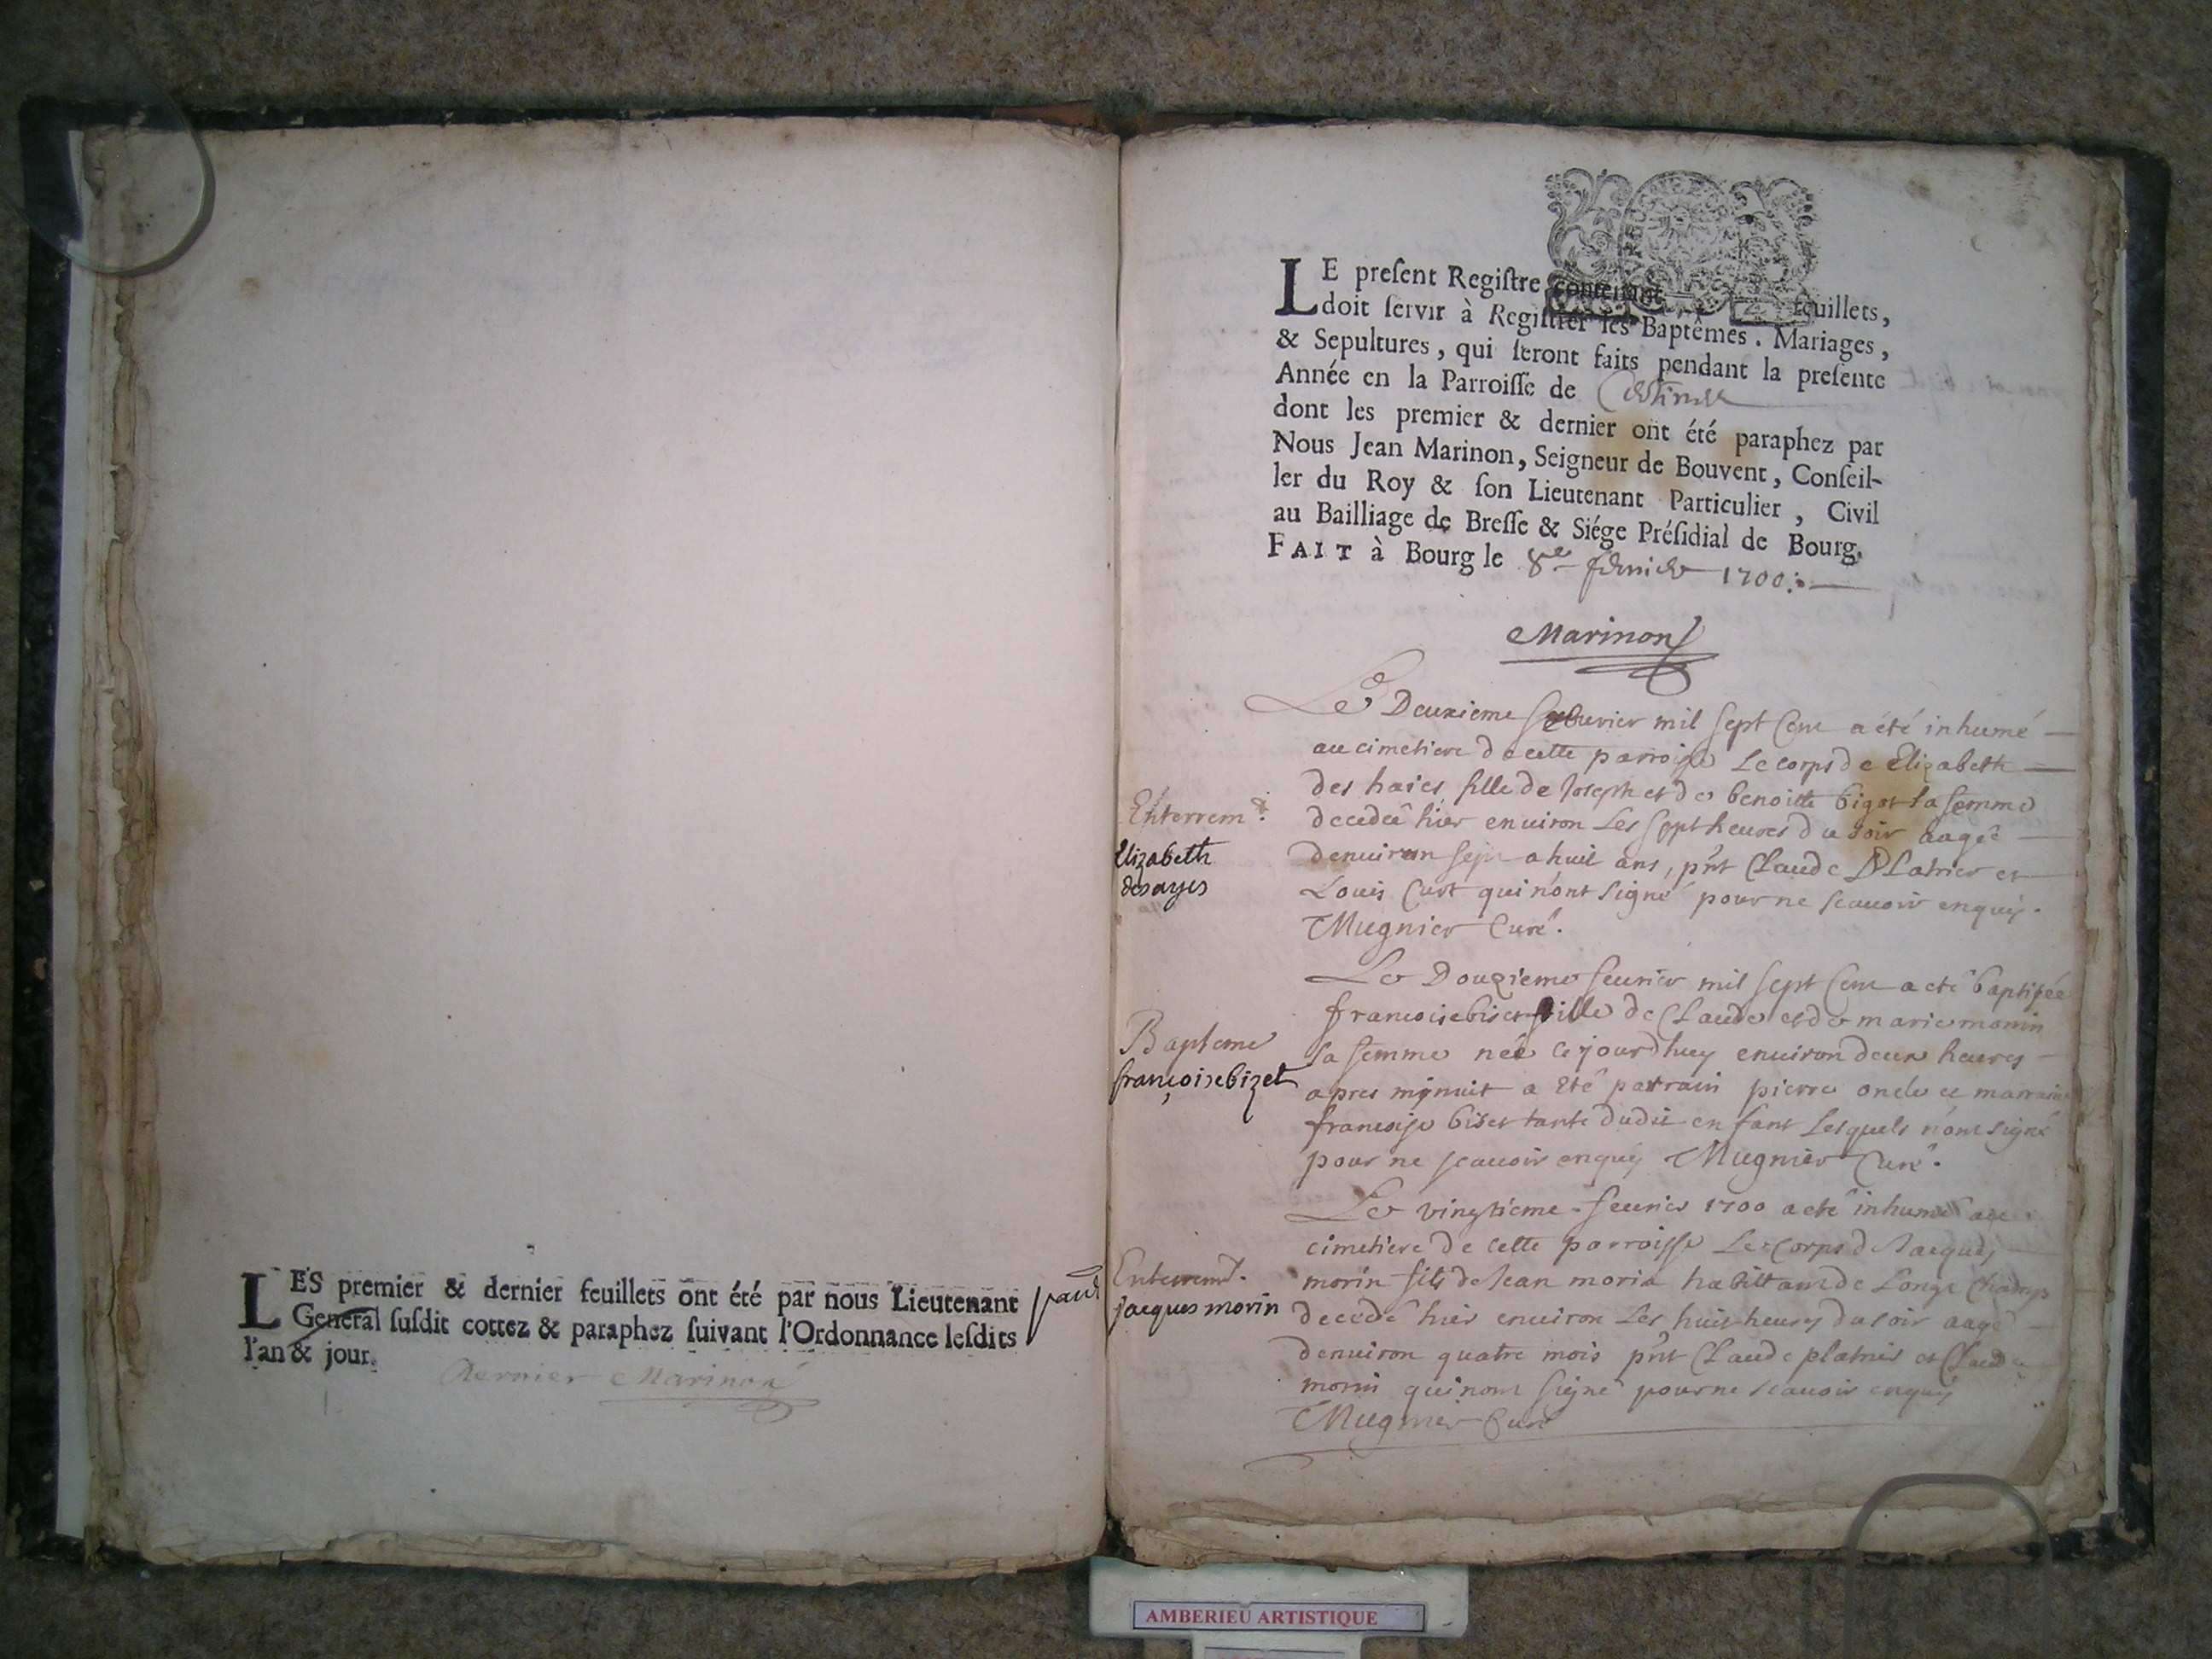 LES premier & dernier feuillets ont été par nous Lieutenant
General susdit cottez & paraphez suivant l'Ordonnance lesdits
l'an & jour.
dernier Marinon
LE present Registre contenant feuillets,
doit servir à Registrer les Baptêmes. Mariages,
& Sepultures, qui seront faits pendant la presente
Année en la Parroisse de
dont les premier & dernier ont été paraphez par
Nous Jean Marinon, Seigneur de Bouvent, Conseil-
ler du Roy & son Lieutenant Particulier, Civil
au Bailliage de Bresse & Siége Présidial de Bourg.
FAIT à Bourg le 8e 1700
Marinon
Le Deuxieme feburier mil sept Cent a été inhumé
au cimetiere de cette parroisse Le corps de Elizabeth
des haies fille de Joseph et de benoitte bigot sa femme
decedeé hier enuiron Les sept heures du soir aageé
denuiron sept a huit ans, pnt Claude Platrier et
Louis Curt qui n'ont signé pour ne scauoir enquis.
Mugnier Curé.
Enterremt.
Elizabeth
desayes
Le Douzieme feurier mil sept Cent a eté baptisée
francoise biset fille de Claude et de marie morin
sa femme neé ce jourdhuy enuiron deux heures
apres minuit a eté parrain pierre oncle et marraine
francoise biset tante dudit enfant Lesquels n'ont signé
pour ne scauoir enquis Mugnier Curé.
Bapteme
françoise bizet
Le vingtieme feurier 1700 a eté inhumé au
cimetiere de cette parroisse Le Corps de Jacques
morin fils de Jean morin habittant de Longe Champ
decedé hier enuiron Les huit heures du soir aagé
denuiron quatre mois pnt Claude platrier et Claude
morin qui n'ont signé pour ne scauoir enquis
Mugnier Curé
Enterremt.
jacques morin
AMBERIEU ARTISTIQUE